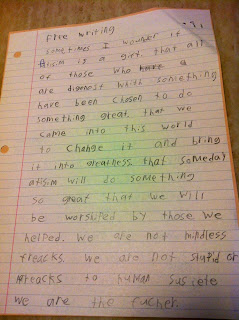 free writing
sometimes I wonder if
Atisim is a gift that all
of those who
are dignost whith something
have been chosen to do
something great that we
came into this world
to change it and bring
it into greatness that someday
atisim will do something
so great that we will
be worshiped by those we
helped. we are not mindless
freacks we are not stupid or
freacks to human susiete
we are the fucher.